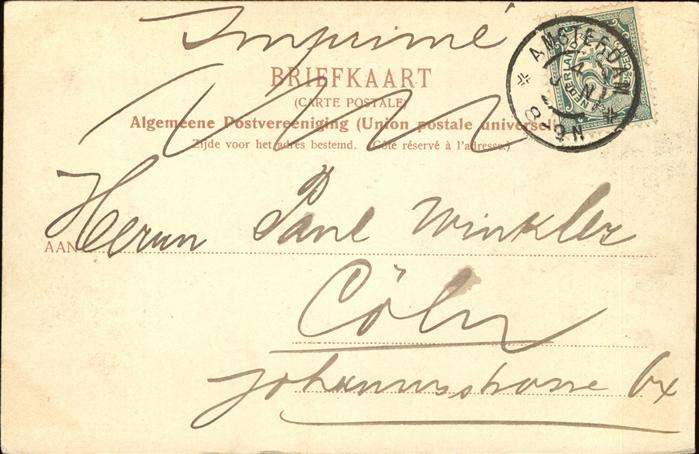 Imprimé
BRIEFKAART
(CARTE POSTALE)
Algemeene Postvereeniging (Union postale universelle)
Zijde voor het adres bestemd. (Côté réservé à l'adresse.)
AMSTERDAM
AAN Herrn Paul Winkler
Cöln
Johannisstrasse